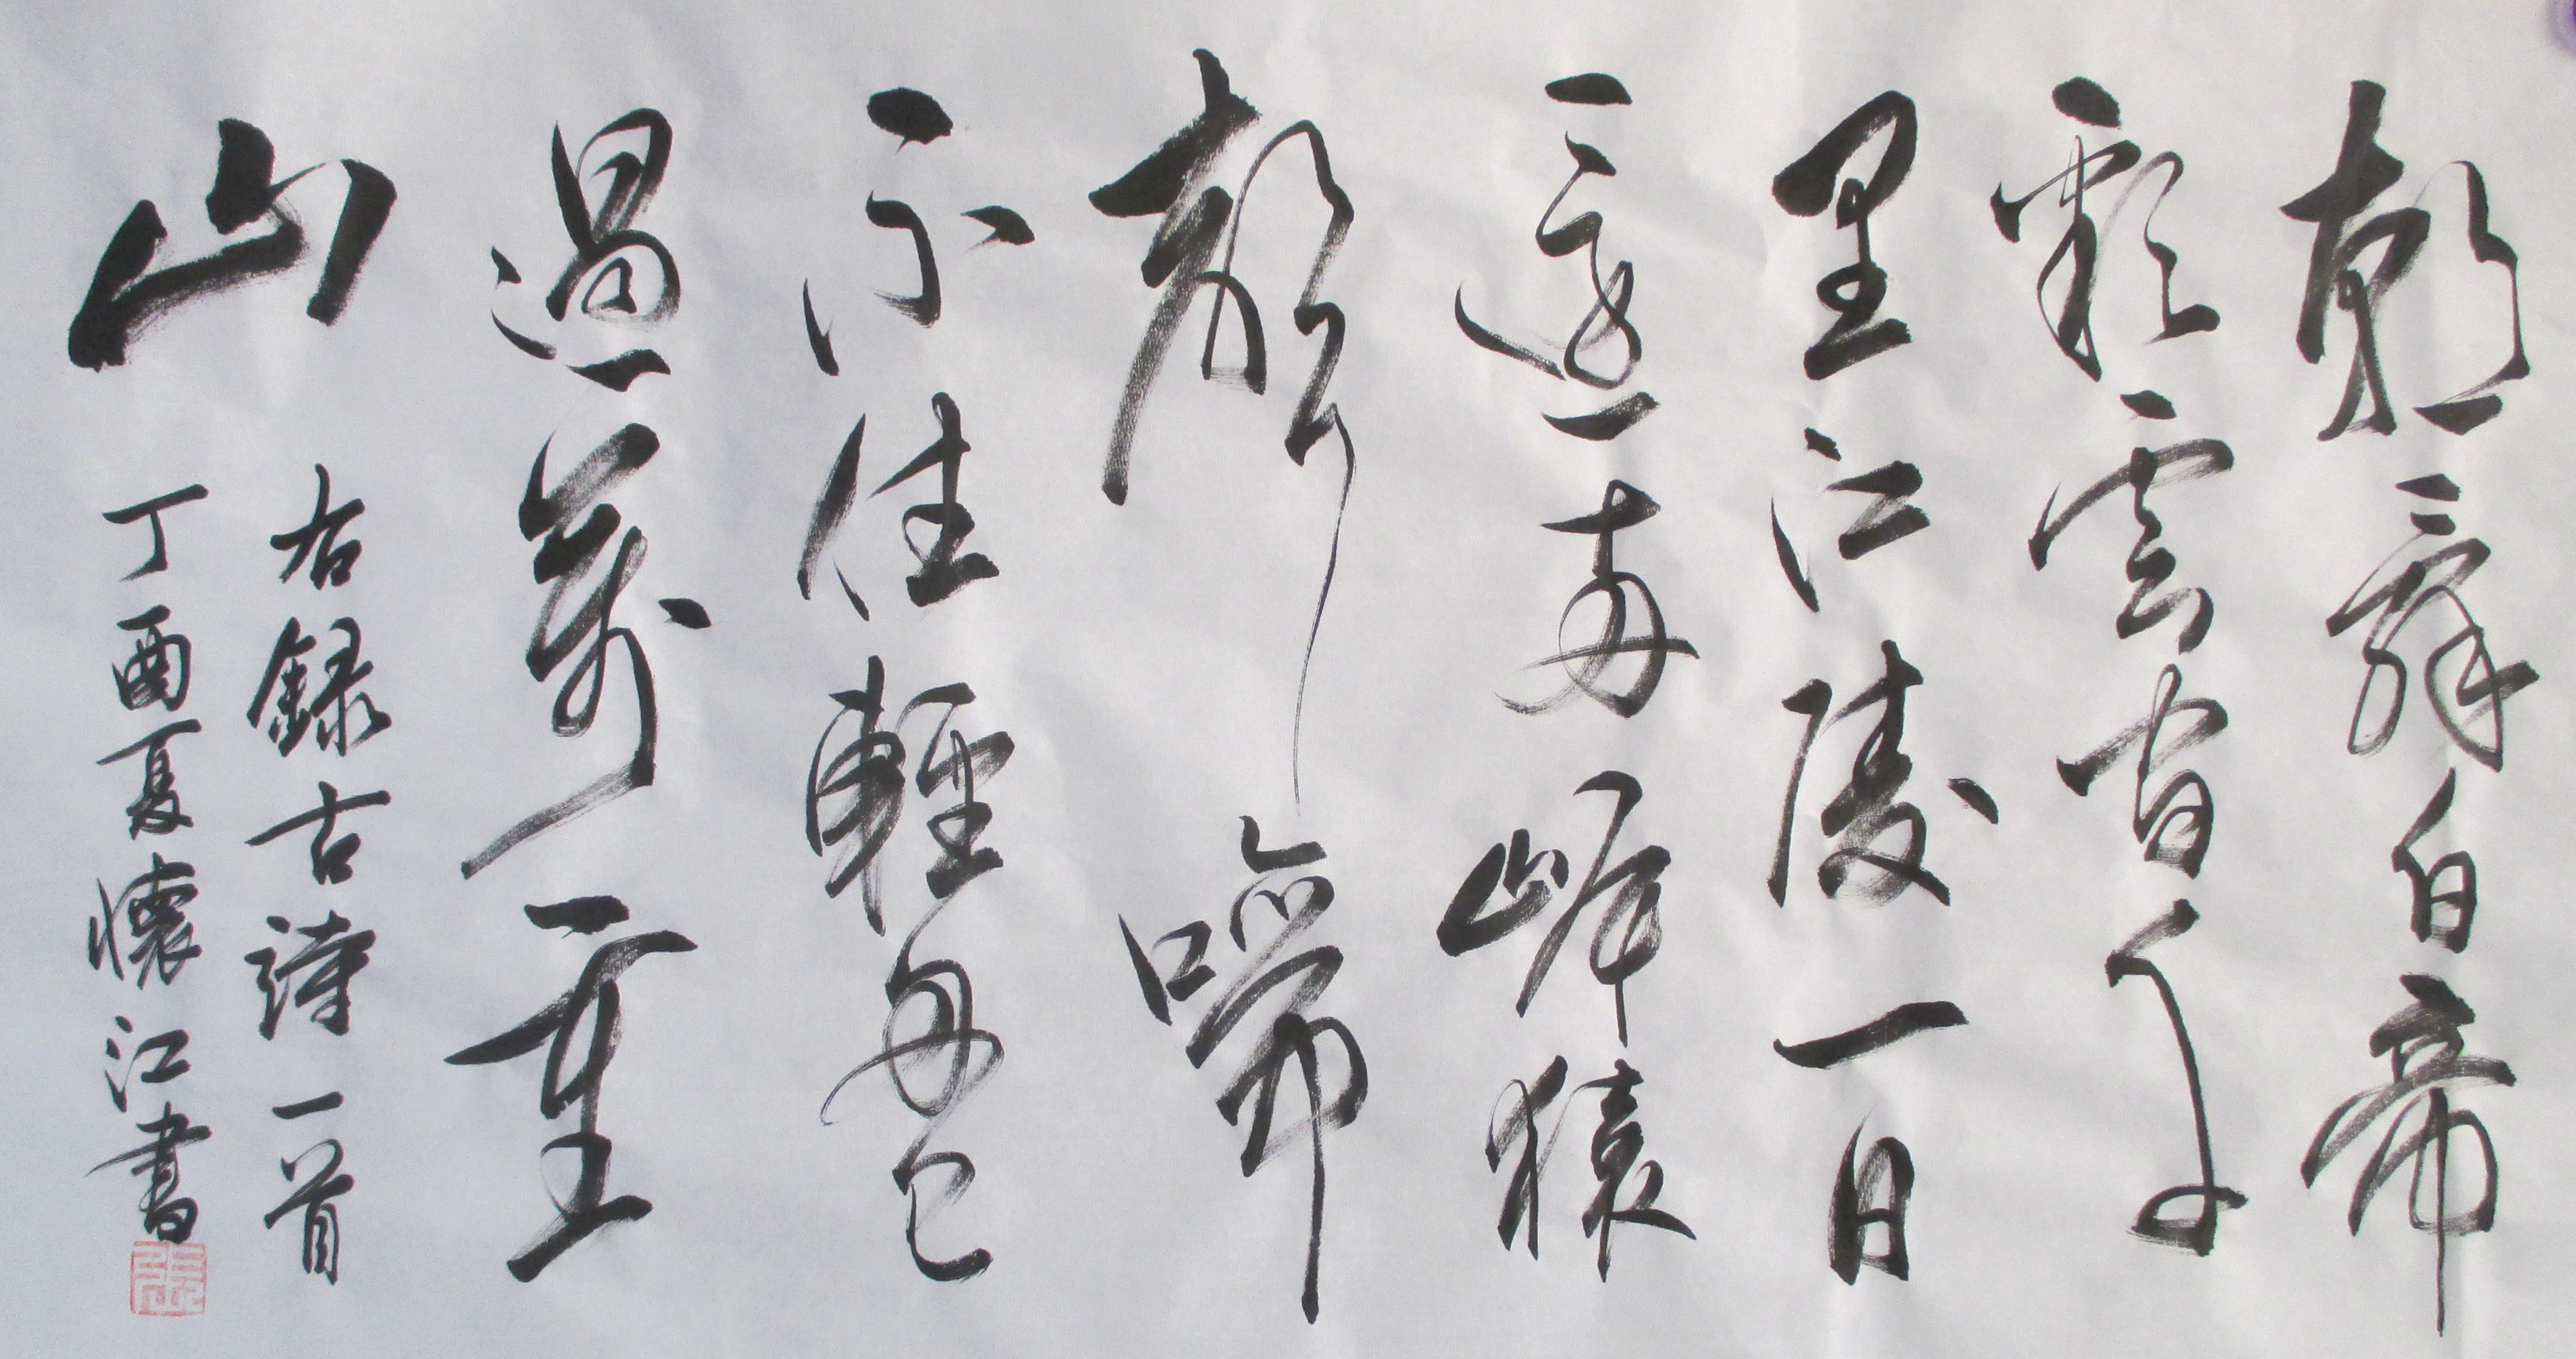 朝辭白帝
彩雲間千
里江陵一日
還兩岸猿
聲啼
不住輕舟已
過萬重
山
右録古詩一首
丁酉夏懷江書